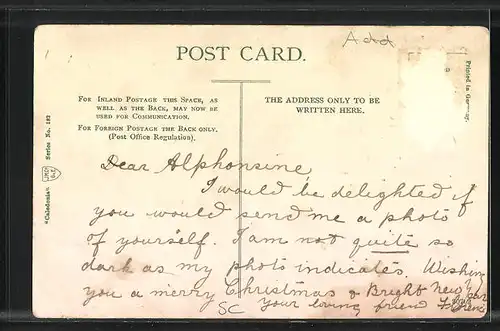 Add
POST CARD.
FOR INLAND POSTAGE THIS SPACE, AS
WELL AS THE BACK, MAY NOW BE
USED FOR COMMUNICATION.
FOR FOREIGN POSTAGE THE BACK ONLY.
(Post Office Regulation).
THE ADDRESS ONLY TO BE
WRITTEN HERE.
Printed in Germany.
"Caledonia" Series No. 182
Dear Alphonsine,
I would be delighted if
you would send me a photo
of yourself. I am not quite so
dark as my photo indicates. Wishing
you a merry Christmas & Bright New Year
SC Your loving friend